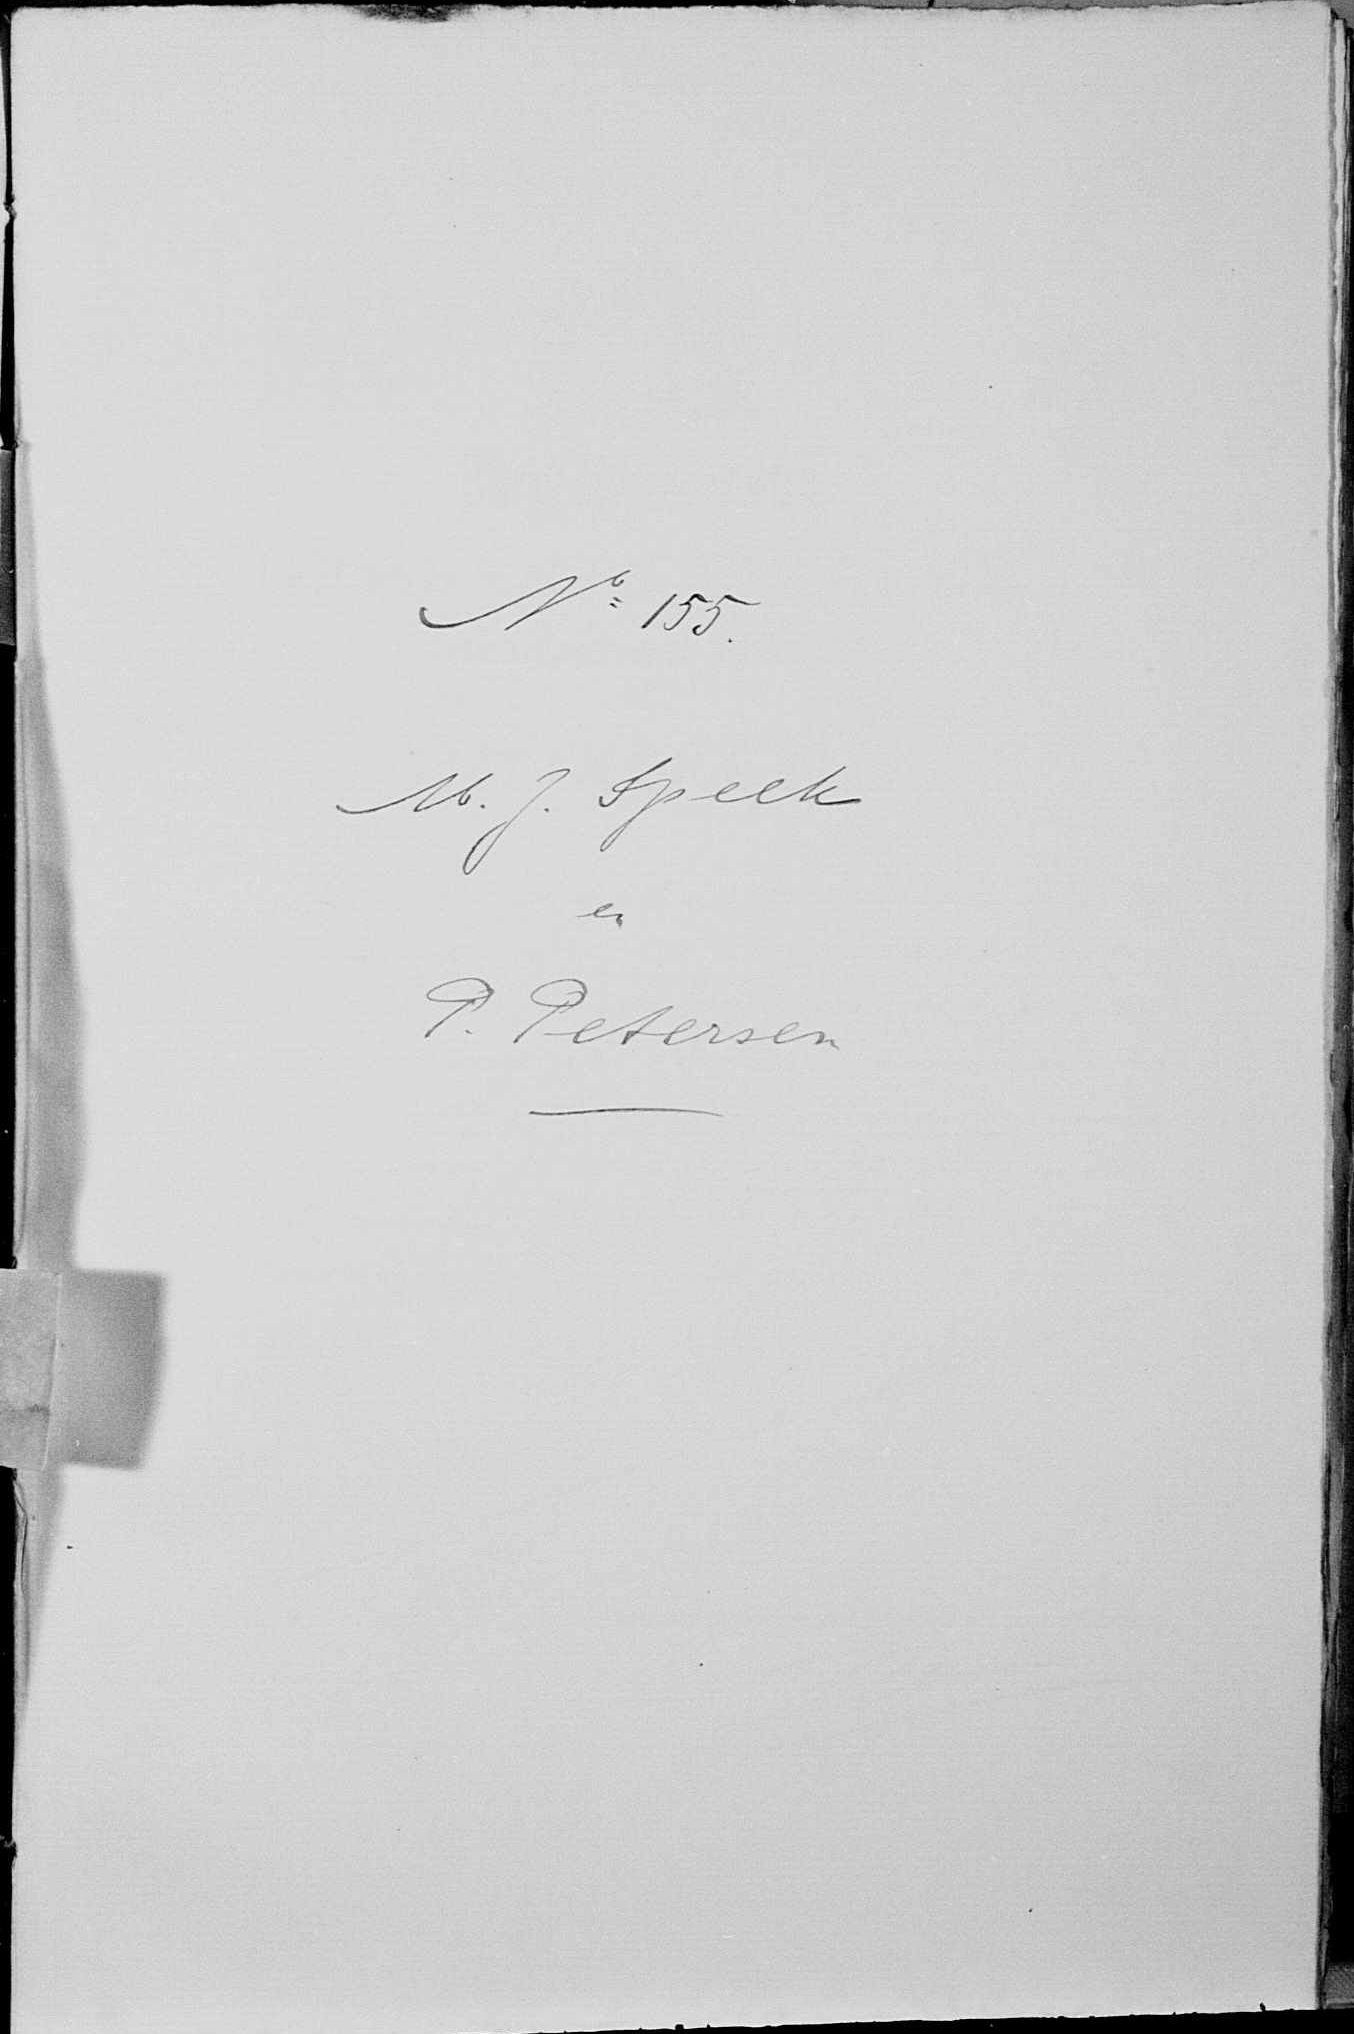 No 155.
M. J. Speek
en
P. Petersen